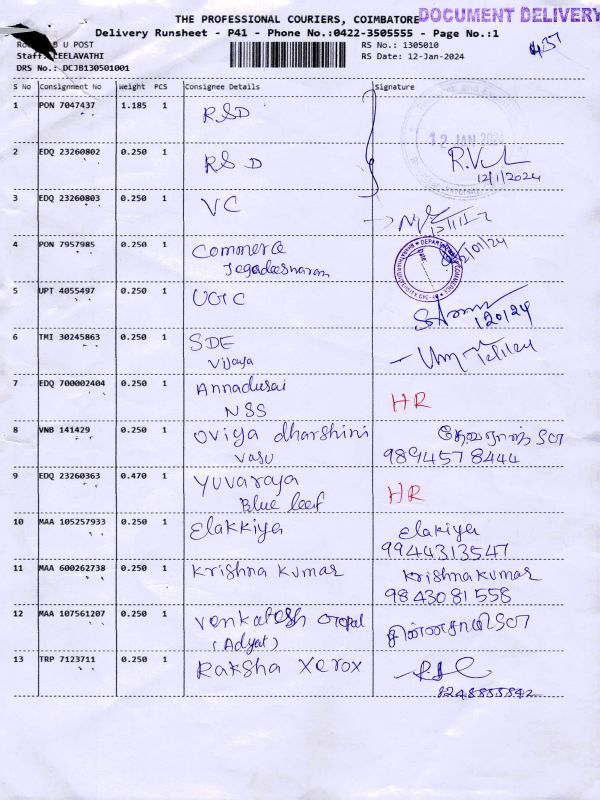 THE PROFESSIONAL COURIERS, COIMBATORE
DOCUMENT DELIVERY
Delivery Runsheet - P41 - Phone No.:0422-3505555 - Page No.:1
U POST
RS No.: 1305010
Staff: LEELAVATHI
RS Date: 12-Jan-2024
DRS No.: DCJB130501001
S No Consignment No Weight PCS Consignee Details Signature
1 PON 7047437 1.185 1 RSD
12 JAN 2024
2 EDQ 23260802 0.250 1 RSD
12/1/2024
3 EDQ 23260803 0.250 1 VC
4 PON 7957985 0.250 1 Commerce
Jegadeeswaran
5 UPT 4055497 0.250 1 UGC
6 TMI 30245863 0.250 1 SDE
Vijaya
7 EDQ 700002404 0.250 1 Annadurai HR
NSS
8 VNB 141429 0.250 1 Oviya dharshini
Vasu 9894578444
9 EDQ 23260363 0.470 1 Yuvaraja HR
Blue leef
10 MAA 105257933 0.250 1 Elakkiya Elakiya
9944313547
11 MAA 600262738 0.250 1 Krishna Kumar Krishna Kumar
9843081558
12 MAA 107561207 0.250 1 Venkatesh
13 TRP 7123711 0.250 1 Raksha Xerox
8248855842